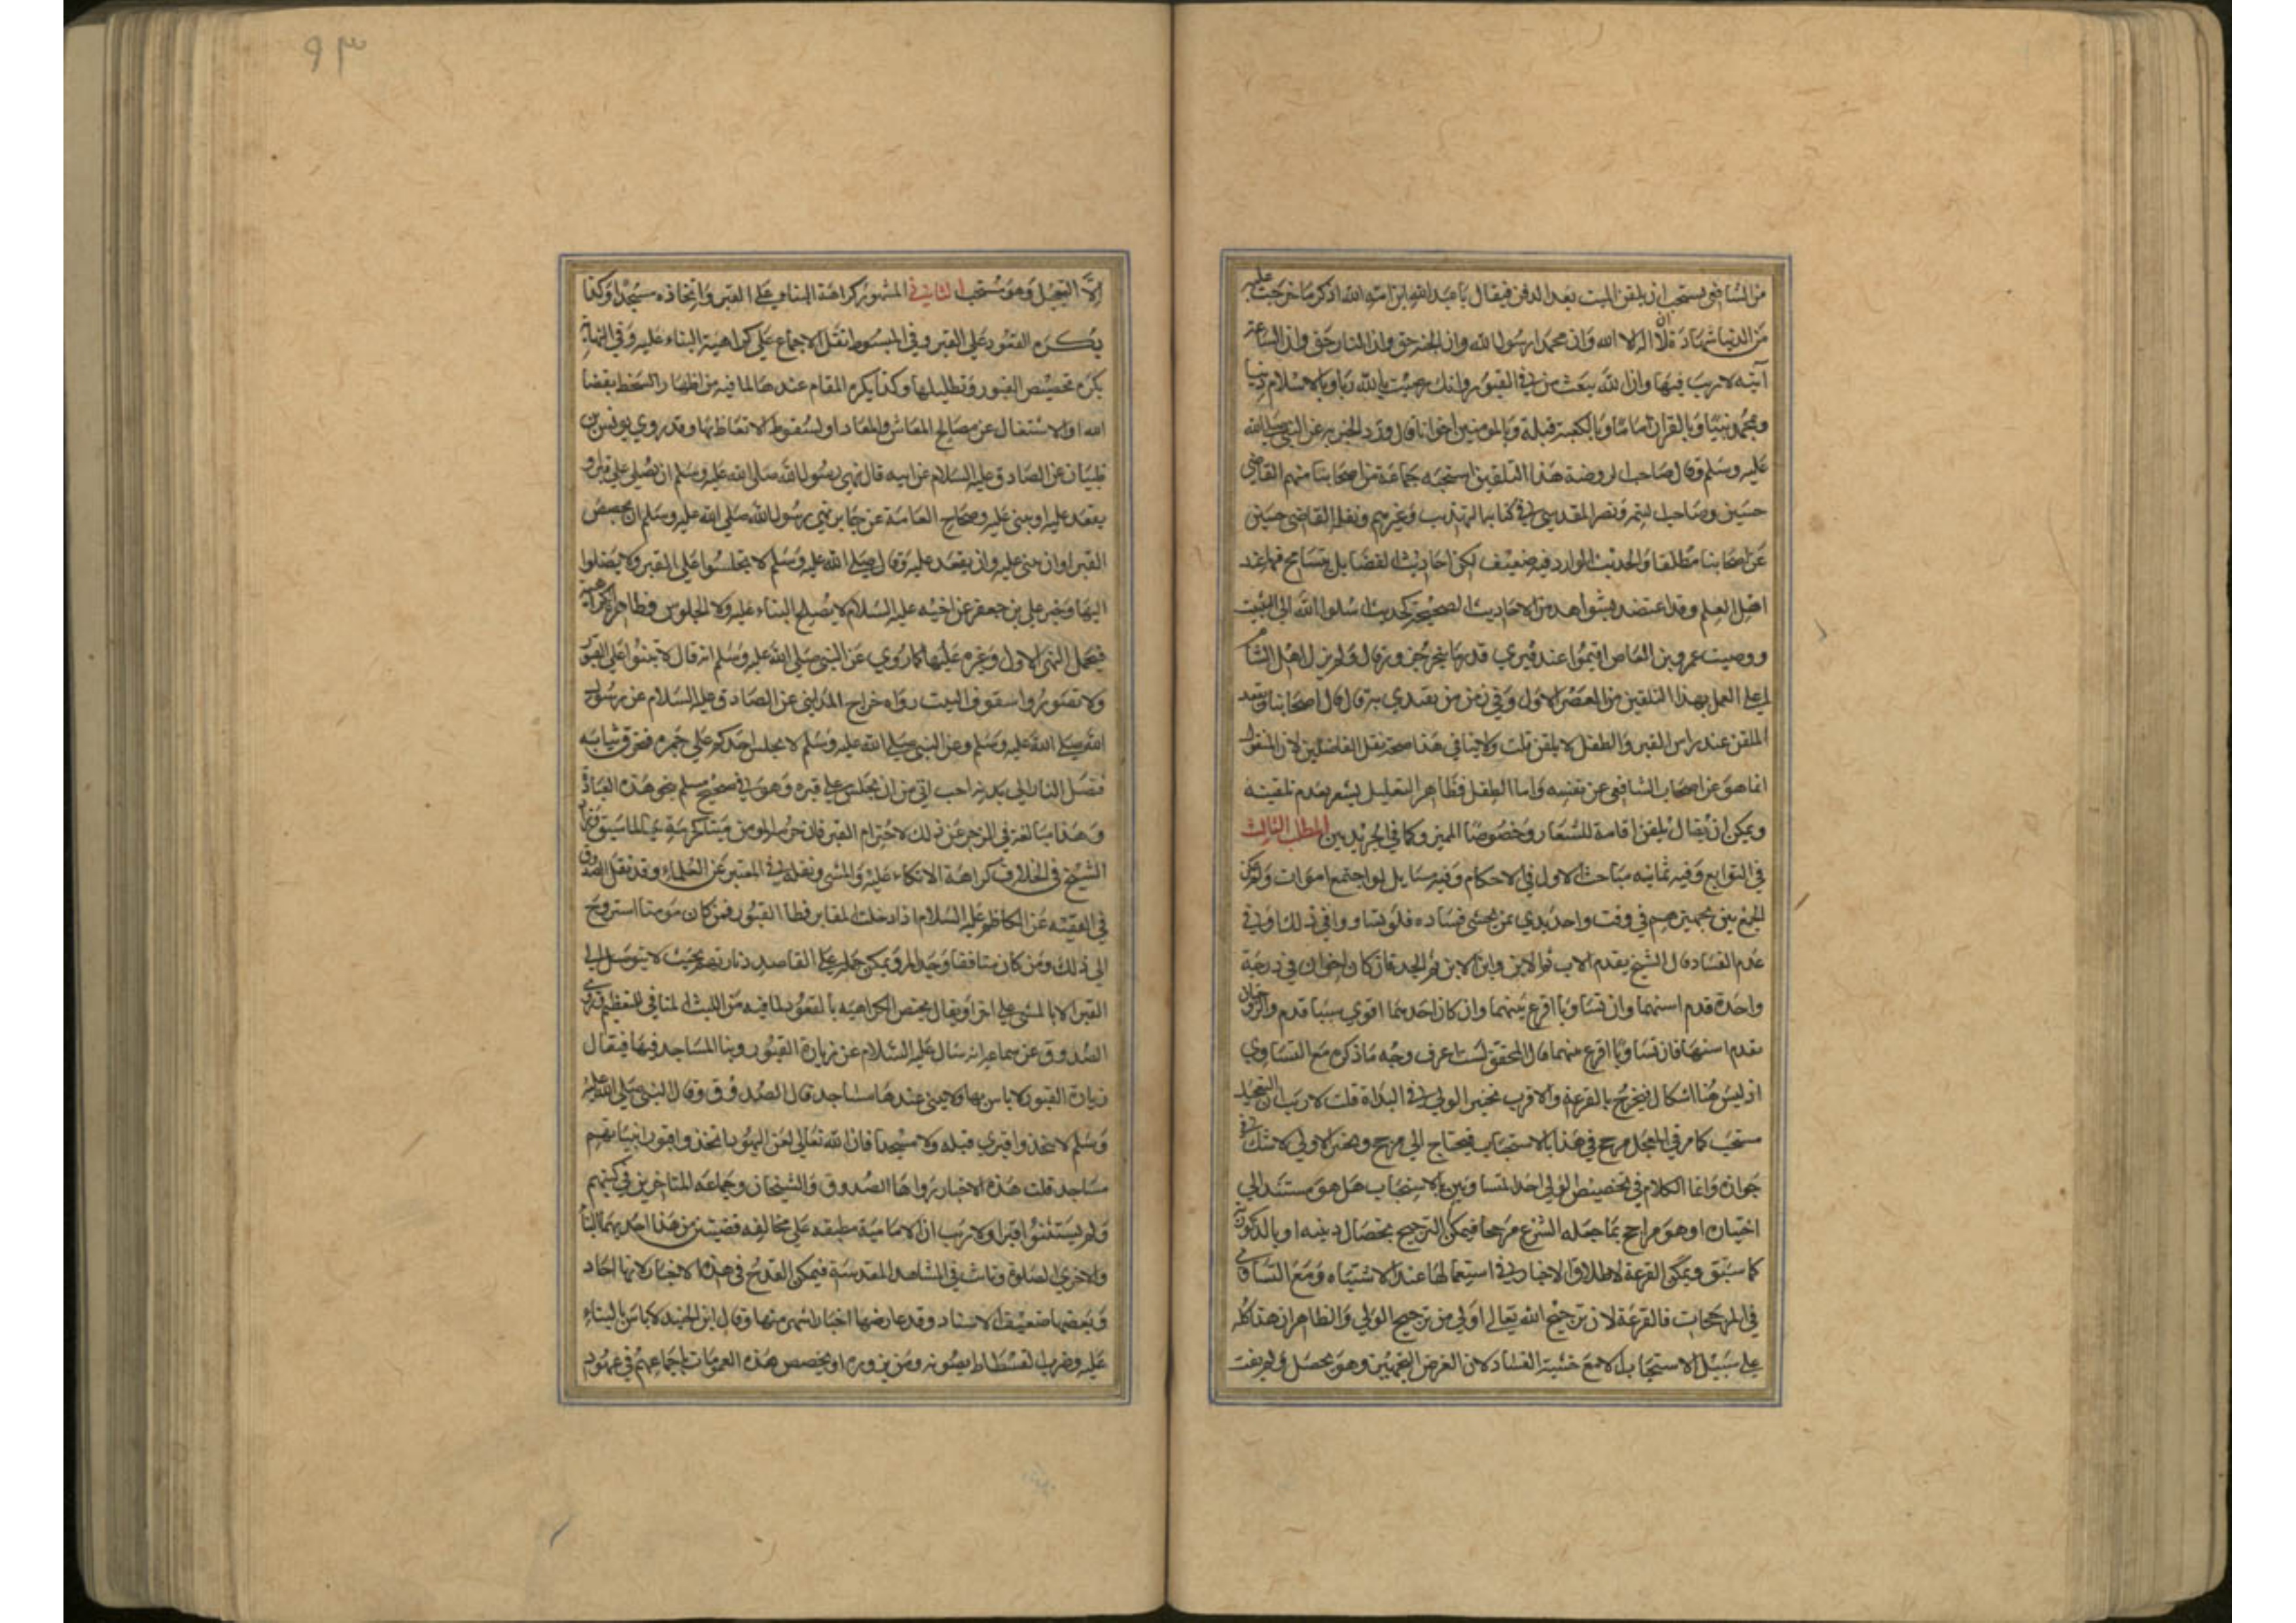 من الشافعي يستحب ان يلقن الميت بعد الدفن فيقال يا عبد الله ابن امة الله اذكر ما خرجت عليه
من الدنيا شهادة ان لا اله الا الله وان محمدا رسول الله وان الجنة حق وان النار حق وان الساعة
آتية لا ريب فيها وان الله يبعث من في القبور وانك رضيت بالله ربا وبالاسلام دينا
وبمحمد نبيا وبالقران اماما وبالكعبة قبلة وبالمومنين اخوانا قال وورد الخبر به عن النبي صلى الله
عليه وسلم وقال صاحب الروضة هذا التلقين استحبه جماعة من اصحابنا منهم القاضي
حسين وصاحب التتمة ونصر المقدسي في كتابه التهذيب وغيرهم ونقله القاضي حسين
عن اصحابنا مطلقا والحديث الوارد فيه ضعيف لكن احاديث الفضايل يتسامح فيها عند
اهل العلم وقد اعتضد بشواهد من الاحاديث الصحيحة كحديث سلوا الله له التثبيت
ووصيت عمرو بن العاص اقيموا عند قبري قدر ما ينحر جزور قال ولم يزل اهل الشام
على العمل بهذا التلقين من العصر الاول وفي زمن من يقتدى به قال قال اصحابنا ويقعد
الملقن عند راس القبر والطفل لا يلقن قلت ولا ينافي هذا صحة نقل الفاضلين لان المنقول
انما هو عن اصحاب الشافعي عن نفسه واما الطفل فظاهر التعليل يشعر بعدم تلقينه
ويمكن ان يقال يلقن اقامة للشعار وخصوصا المميز وكما في الجريدتين المطلب الثالث
في التوابع وفيه ثمانية مباحث الاول في الاحكام وفيه مسايل لو اجتمع اموات ولم يمكن
الجمع بين تجهيزهم في وقت واحد بدي بمن يخشى فساده فلو تساووا في ذلك او في
عدم الفساد قال الشيخ يقدم الاب ثم الابن وابن الابن ثم الجد فان كان اخوان في درجة
واحدة قدم اسنهما وان تساويا اقرع بينهما وان كان احدهما اقوى سببا قدم والزوجتان
يقدم اسنهما فان تساويا اقرع بينهما قال المحقق لست اعرف وجه ما ذكره مع التساوي
اذ ليس هنا اشكال فيخرج بالقرعة والاقرب تخير الولي في البداة قلت لا ريب ان التعجيل
مستحب كما مر في المعجل مرجح في هذا بالاستحباب فيحتاج الى مرجح وتخير الاولى لا شك في
جوازه وانما الكلام في تخصيص الولي احد المتساويين بالاستحباب هل هو مستند الى
اختياره او هو مراجح بما جعله الشرع مرجحا فيمكن الترجيح بخصال دينه او بالذكورية
كما سبق ويمكن القرعة لاطلاق الاخبار في استعمالها عند الاشتباه ومع التساوي
في المرجحات فالقرعة لان ترجيح الله تعالى اولى من ترجيح الولي والظاهر ان هذا كله
على سبيل الاستحباب الا مع خشية الفساد لان الغرض التجهيز وهو يحصل ولم يفت
٩٣
الا التعجيل وهو مستحب الثاني في المشهور كراهة البناء على القبر واتخاذه مسجدا وكذا
يكره القعود على القبر وفي المبسوط نقل الاجماع على كراهية البناء عليه وفي النهاية
يكره تجصيص القبور وتظليلها وكذا يكره المقام عندها لما فيه من اظهار السخط بقضا
الله او الاشتغال عن مصالح المعاش والمعاد او لسقوط الاتعاظ بها وقد روي يونس بن
ظبيان عن الصادق عليه السلام عن ابيه قال نهى رسول الله صلى الله عليه وسلم ان يصلى على قبر او
يقعد عليه او يبنى عليه وصحاح العامة عن جابر نهى رسول الله صلى الله عليه وسلم ان يجصص
القبر او ان يبنى عليه وان يقعد عليه وقال صلى الله عليه وسلم لا تجلسوا على القبر ولا تصلوا
اليها وخبر علي بن جعفر عن اخيه عليه السلام لا يصلح البناء عليه ولا الجلوس وظاهره الكراهية
فيحمل النهي الاول وغيره عليها كما روي عن النبي صلى الله عليه وسلم انه قال لا تبنوا على القبور
ولا تصوروا سقوف البيت رواه جراح المدايني عن الصادق عليه السلام عن رسول
الله صلى الله عليه وسلم وعن النبي صلى الله عليه وسلم لا يجلس احدكم على جمرة فتحرق ثيابه
فتصل النار الى بدنه احب الي من ان يجلس على قبره وهو في صحيح مسلم نحو هذه العبارة
وهذا مبالغة في الزجر عن ذلك لاحترام القبر فان حرمة المومن ميتا كحرمته حيا لما سبق ونقل
الشيخ في الخلاف كراهة الاتكاء عليه والمشي ونقله في المعتبر عن العلماء وقد نقل الصدوق
في الفقيه عن الكاظم عليه السلام اذا دخلت المقابر فطا القبور فمن كان مومنا استروح
الى ذلك ومن كان منافقا وجد المه ويمكن حمله على القاصد زيارتهم بحيث لا يتوصل الى
القبر الا بالمشي على اخر او يقال يختص الكراهية بالقعود لما فيه من اللبث المنافي للتعظيم وروى
الصدوق عن سماعة انه سال عليه السلام عن زيارة القبور وبنا المساجد فيها فقال
زيارة القبور لا باس بها ولا يبنى عندها مساجد قال الصدوق وقال النبي صلى الله عليه
وسلم لا تتخذوا قبري قبلة ولا مسجدا فان الله تعالى لعن اليهود اتخذوا قبور انبيائهم
مساجد قلت هذه الاخبار رواها الصدوق والشيخان وجماعة المتاخرين في كتبهم
ولم يستثنوا قبرا ولا ريب ان الامامية مطبقة على مخالفة قضيتين من هذا احديهما البناء
والاخرى الصلوة وتاتي في المشاهد المقدسة فيمكن القدح في هذه الاخبار لانها احاد
وبعضها ضعيف الاسناد وقد عارضها اخبار اشهر منها وقال ابن الجنيد لا باس بالبناء
عليه وضرب الفسطاط يصونه ومن يزوره او تخصص هذه العمومات باجماعهم في عهود